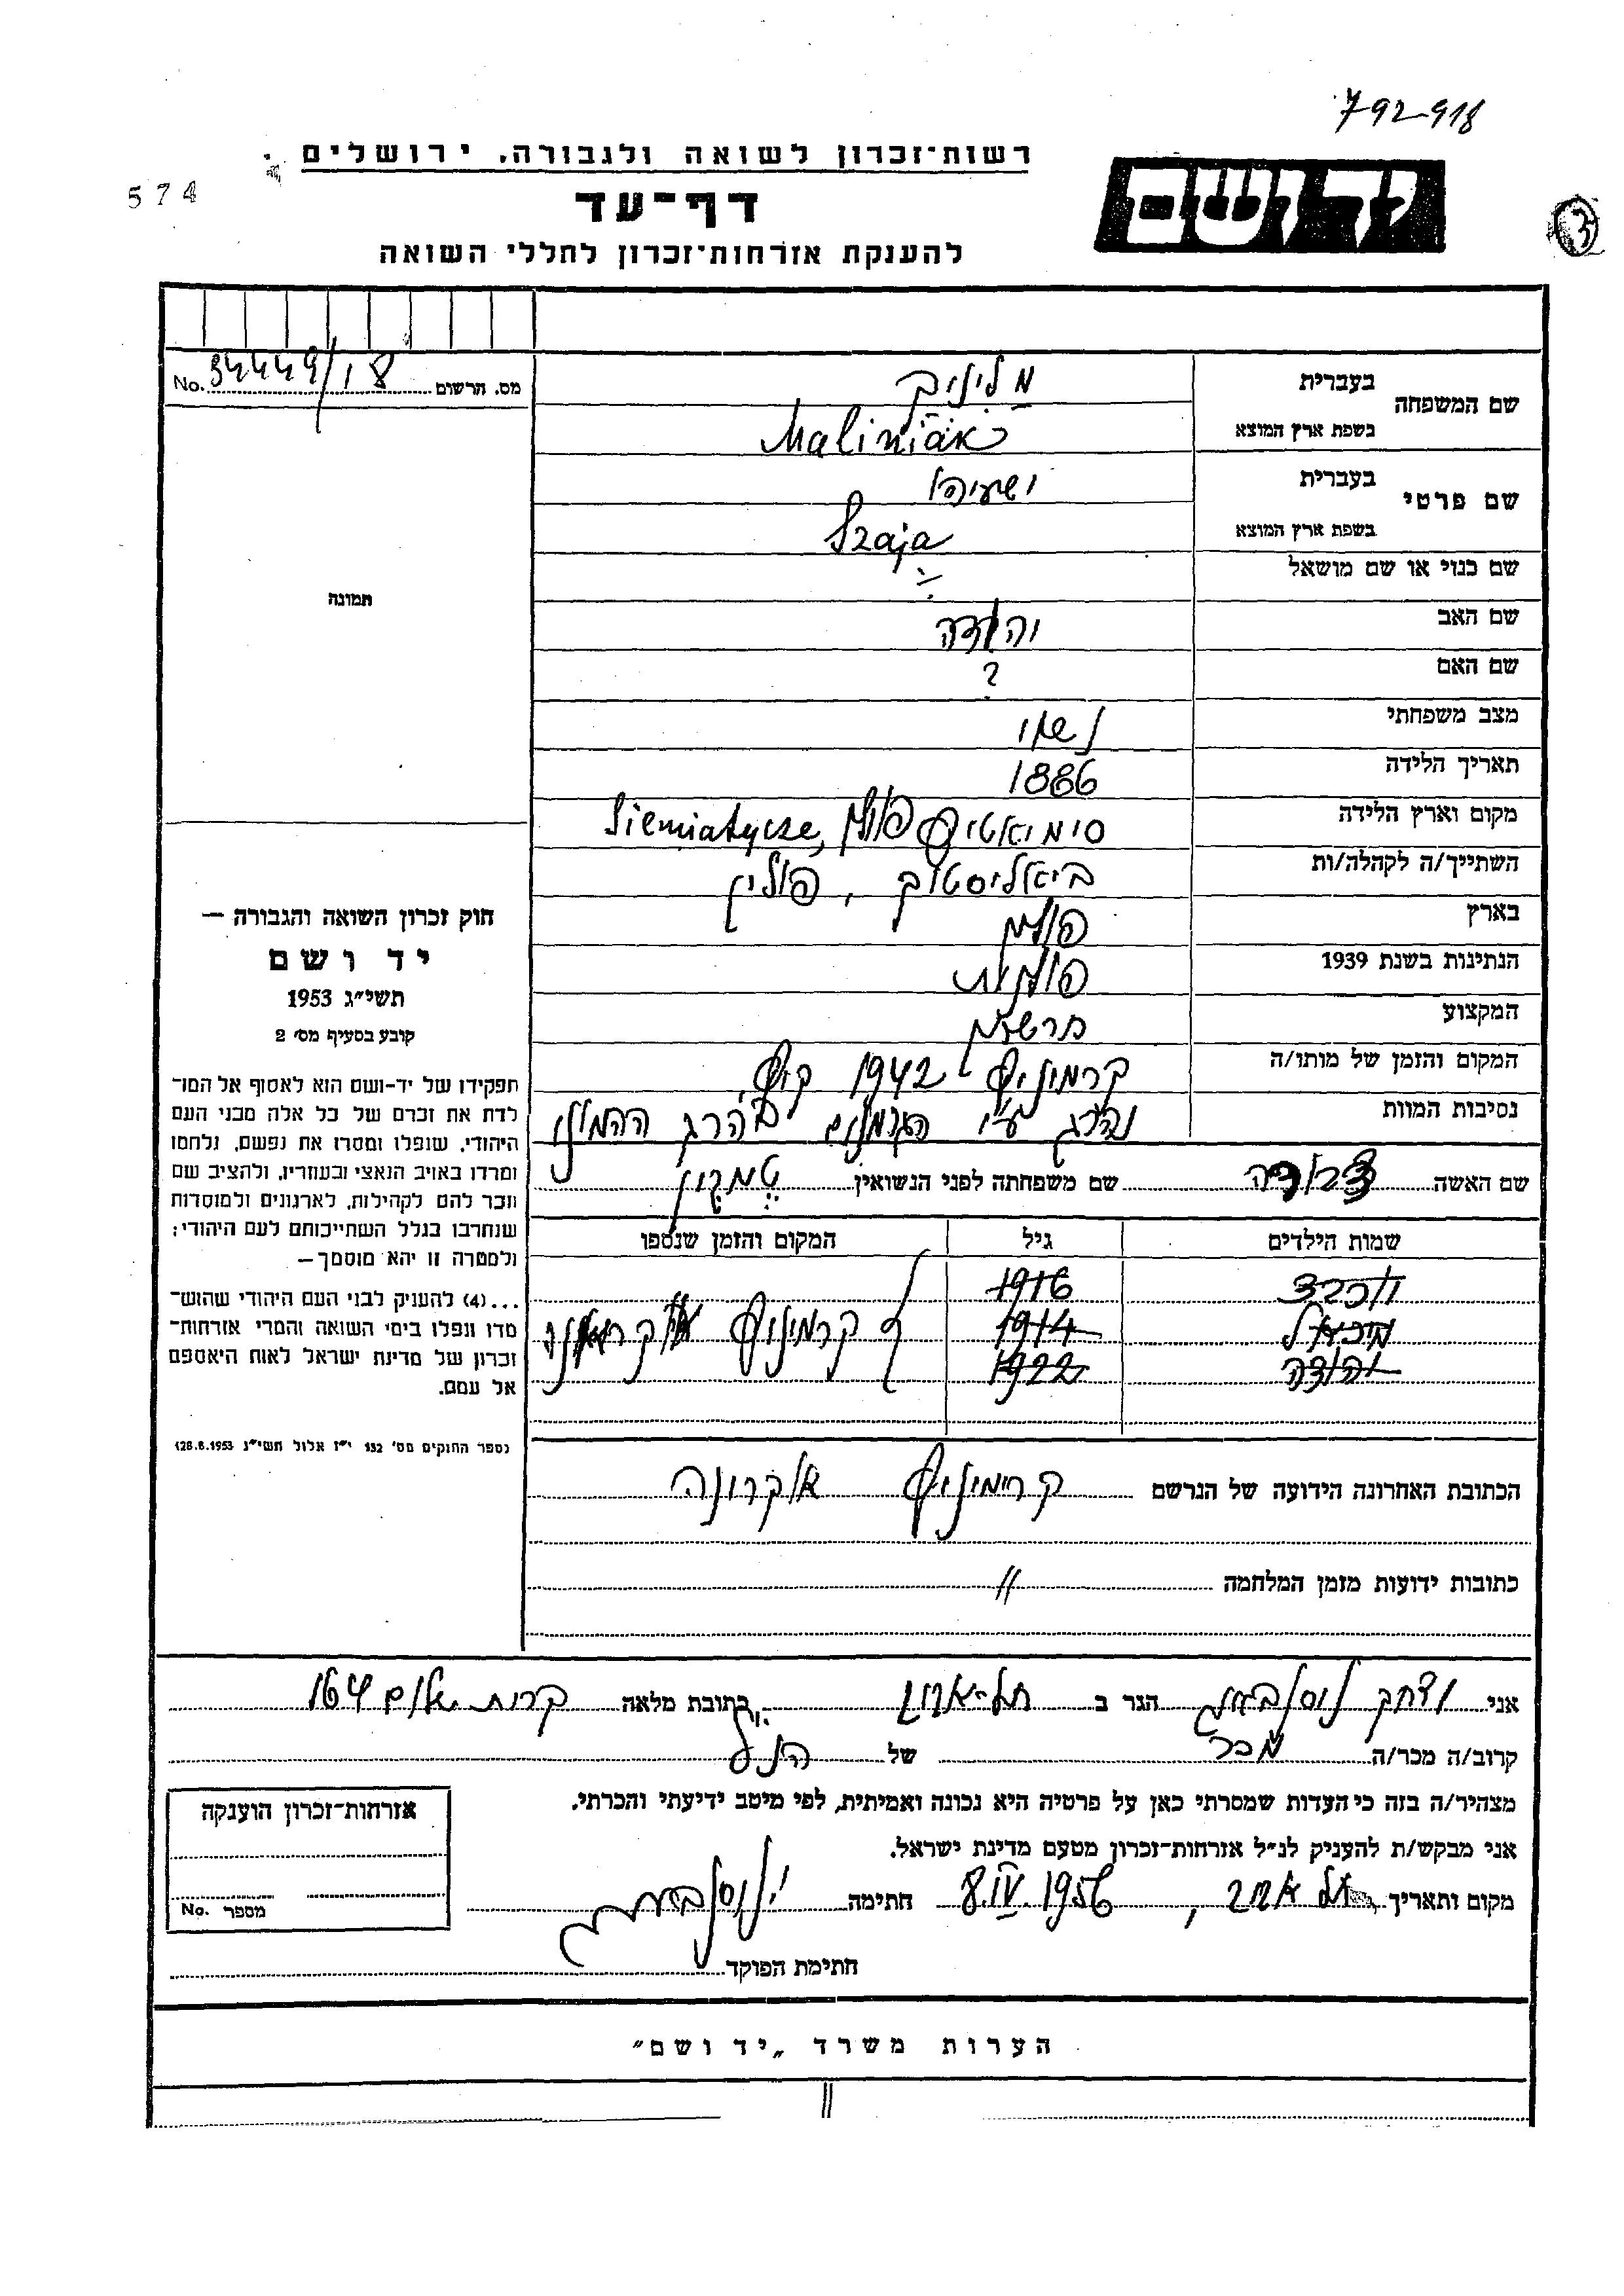 792-918
רשות־זכרון לשואה ולגבורה, ירושלים
574
יד ושם
דף־עד
3
להענקת אזרחות־זכרון לחללי השואה
מס. הרשום 34449/18 No.
שם המשפחה
בעברית
מליניאק
בשפת ארץ המוצא Maliniak
שם פרטי
בעברית ישעיהו
בשפת ארץ המוצא Szaja
שם כנוי או שם מושאל
שם האב יהודה
שם האם ?
מצב משפחתי נשוי
תאריך הלידה 1886
מקום וארץ הלידה סימיאטיץ פולין, Siemiatycze
השתייך/ה לקהלה/ות ביאליסטוק, פולין
בארץ פולין
הנתינות בשנת 1939 פולנית
המקצוע
המקום והזמן של מותו/ה קרמיניץ 1942 קיץ
נסיבות המוות נהרג ע"י הגרמנים בהרג ההמוני
שם האשה דבורה שם משפחתה לפני הנשואין טמקין
שמות הילדים גיל המקום והזמן שנספו
1916
מיכאל 1914 קרמיניץ אוקראינה
יהודה 1922
הכתובת האחרונה הידועה של הנרשם קרימיניץ אוקרונה
כתובות ידועות מזמן המלחמה //
תמונה
חוק זכרון השואה והגבורה —
יד ושם
תשי״ג 1953
קובע בסעיף מס׳ 2
תפקידו של יד-ושם הוא לאסוף אל המו־
לדת את זכרם של כל אלה מבני העם
היהודי, שנפלו ומסרו את נפשם, נלחמו
ומרדו באויב הנאצי ובעוזריו, ולהציב שם
וזכר להם לקהילות, לארגונים ולמוסדות
שנחרבו בגלל השתייכותם לעם היהודי;
ולמטרה זו יהא מוסמך—
...(4) להעניק לבני העם היהודי שהוש־
מדו ונפלו בימי השואה והמרי אזרחות־
זכרון של מדינת ישראל לאות היאספם
אל עמם.
(ספר החוקים מס׳ 132 י״ז אלול תשי״ג 28.8.1953)
אני יצחק נוסנבוים הגר ב תל-אביב כתובת מלאה קרית שלום 164
קרוב/ה מכר/ה מכר של הנ"ל
מצהיר/ה בזה כי העדות שמסרתי כאן על פרטיה היא נכונה ואמיתית, לפי מיטב ידיעתי והכרתי.
אני מבקש/ת להעניק לנ״ל אזרחות־זכרון מטעם מדינת ישראל.
מקום ותאריך תל אביב, 8.IV.1956 חתימה
חתימת הפוקד
אזרחות־זכרון הוענקה
מספר No.
הערות משרד „יד ושם״
//